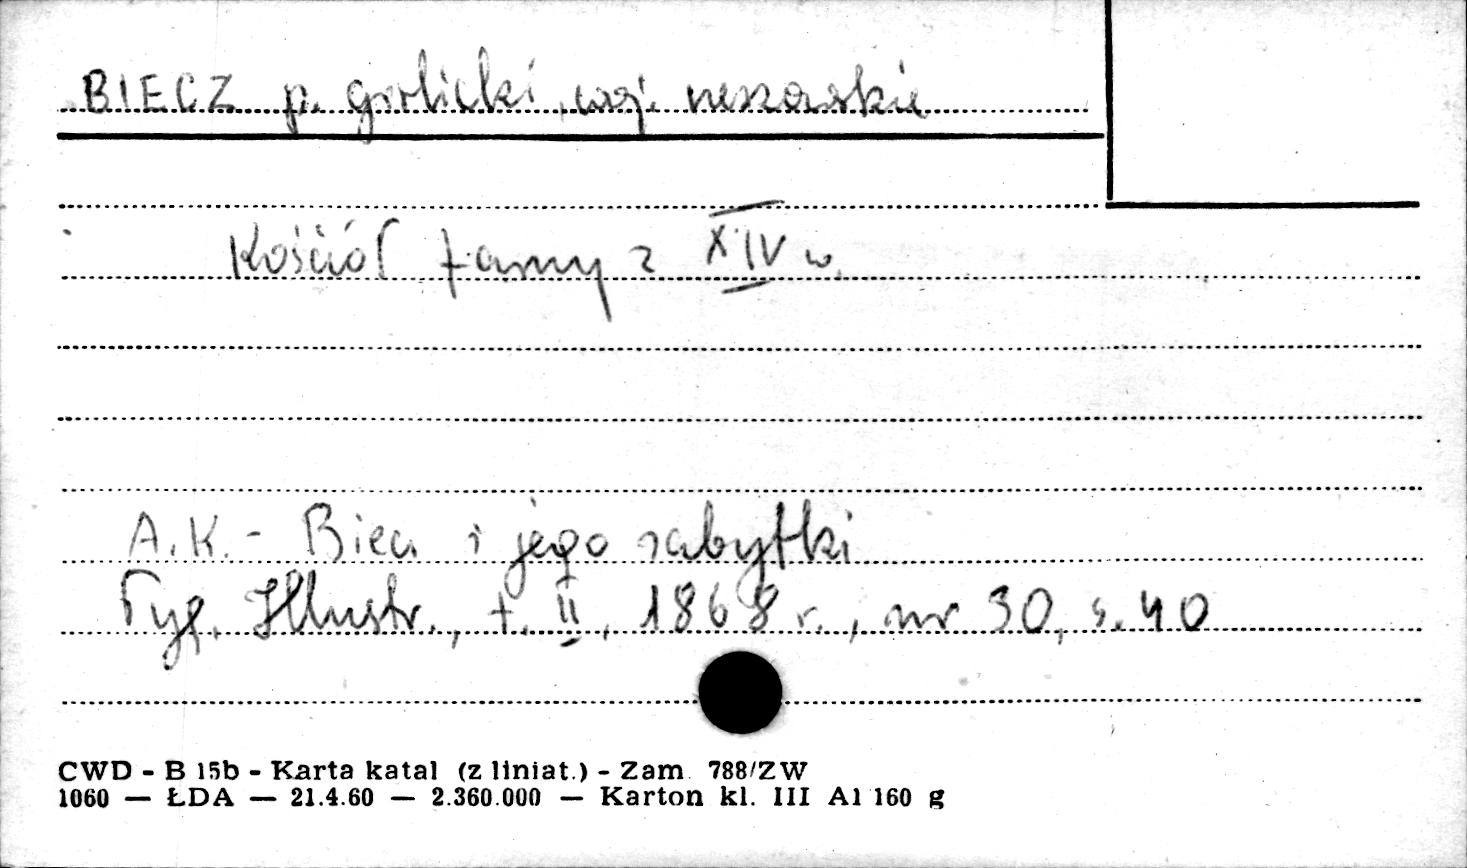 BIECZ p. gorlicki, woj. rzeszowskie
Kościół farny z XIV w.
A.K. - Biecz i jego zabytki
Tyg. Illustr., t. II, 1868 r., nr 30, s. 40
CWD - B 15b - Karta katal (z liniat.) - Zam. 788/ZW
1060 — ŁDA — 21.4.60 — 2.360.000 — Karton kl. III A1 160 g